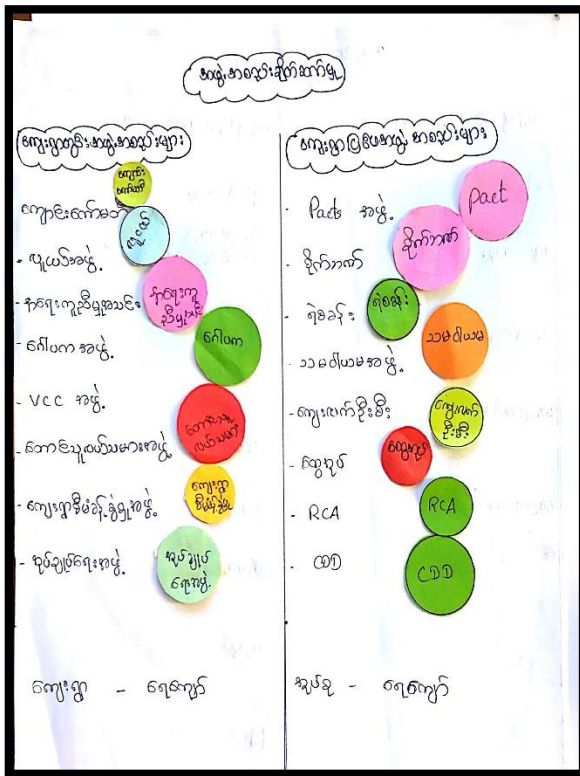 အဖွဲ့အစည်းချိတ်ဆက်မှု
ကျေးရွာတွင်းအဖွဲ့အစည်းများ
ကျောင်းကော်မတီ
- လူငယ်အဖွဲ့
- နာရေးကူညီမှုအသင်း
- ဂေါပကအဖွဲ့
- VCC အဖွဲ့
- တောင်သူလယ်သမားအဖွဲ့
- ကျေးရွာစီမံခန့်ခွဲမှုအဖွဲ့
- အုပ်ချုပ်ရေးအဖွဲ့
ကျောင်းကော်မတီ
လူငယ်
နာရေးကူညီမှုအသင်း
ဂေါပက
တောင်သူလယ်သမား
ကျေးရွာစီမံခန့်ခွဲမှု
အုပ်ချုပ်ရေးအဖွဲ့
ကျေးရွာ - ရေကျော်
ကျေးရွာပြင်ပအဖွဲ့အစည်းများ
- Pacts အဖွဲ့
- စိုက်ဘဏ်
- ရဲစခန်း
- သမဝါယမအဖွဲ့
- ကျေးလက်ဦးစီး
- ထွေအုပ်
- RCA
- CDD
Pact
စိုက်ဘဏ်
ရဲစခန်း
သမဝါယမ
ကျေးလက်ဦးစီး
ထွေအုပ်
RCA
CDD
အုပ်စု - ရေကျော်